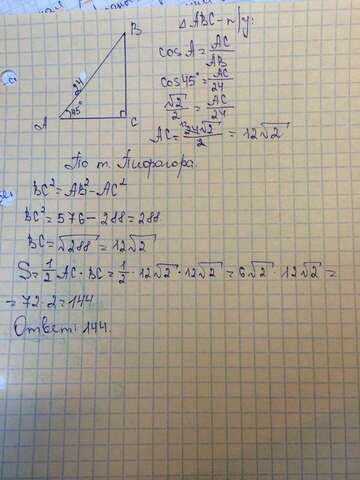 B
24
45°
A
C
△ABC - п/у:
cosA = AC/AB
cos45° = AC/24
√2/2 = AC/24
AC = 24√2/2 = 12√2
По т. Пифагора.
BC² = AB² - AC²
BC² = 576 - 288 = 288
BC = √288 = 12√2
S = 1/2 AC · BC = 1/2 · 12√2 · 12√2 = 6√2 · 12√2 =
= 72 · 2 = 144
Ответ: 144.